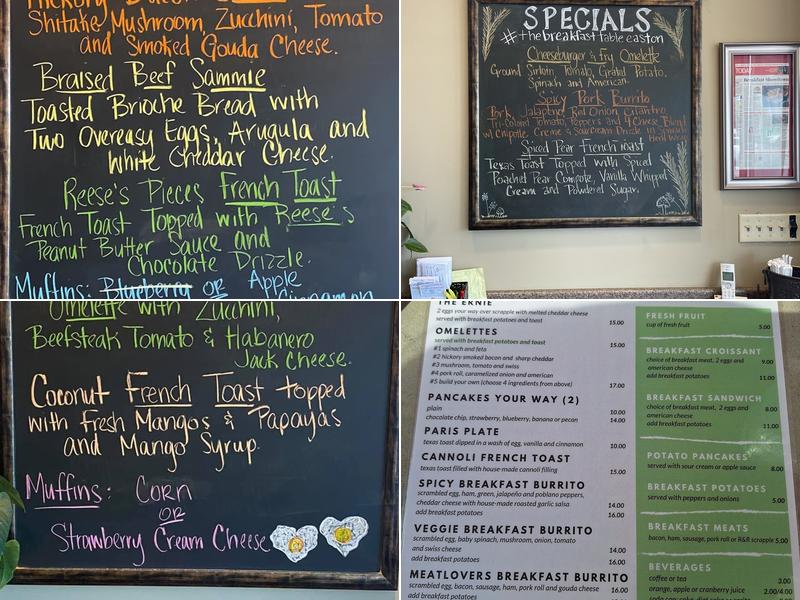 Hickory Bacon
Shitake Mushroom, Zucchini, Tomato
and Smoked Gouda Cheese.
Braised Beef Sammie
Toasted Brioche Bread with
Two Overeasy Eggs, Arugula and
White Cheddar Cheese.
Reese's Pieces French Toast
French Toast Topped with Reese's
Peanut Butter Sauce and
Chocolate Drizzle.
Muffins: Blueberry or Apple
Cinnamon
SPECIALS
#thebreakfasttableeaston
Cheeseburger & Fry Omelette
Ground Sirloin, Tomato, Grated Potato,
Spinach and American.
Spicy Pork Burrito
Pork, Jalapeno, Red Onion, Cilantro,
Tri-Colored Tomato, Peppers and 4 Cheese Blend
w/ Chipotle Creme & Sour Cream Drizzle in Spinach
Herb Wrap
Spiced Pear French Toast
Texas Toast Topped with Spiced
Poached Pear Compote, Vanilla Whipped
Cream and Powdered Sugar.
TODAY
Omelette with Zucchini,
Beefsteak Tomato & Habanero
Jack Cheese.
Coconut French Toast topped
with Fresh Mangos & Papaya's
and Mango Syrup.
Muffins: Corn
OR
Strawberry Cream Cheese
THE ERNIE
2 eggs your way over scrapple with melted cheddar cheese
served with breakfast potatoes and toast 15.00
OMELETTES
served with breakfast potatoes and toast 15.00
#1 spinach and feta
#2 hickory smoked bacon and sharp cheddar
#3 mushroom, tomato and swiss
#4 pork roll, caramelized onion and american
#5 build your own (choose 4 ingredients from above) 17.00
PANCAKES YOUR WAY (2)
plain 10.00
chocolate chip, strawberry, blueberry, banana or pecan 14.00
PARIS PLATE
texas toast dipped in a wash of egg, vanilla and cinnamon 10.00
CANNOLI FRENCH TOAST
texas toast filled with house-made cannoli filling 15.00
SPICY BREAKFAST BURRITO
scrambled egg, ham, green, jalapeño and poblano peppers,
cheddar cheese with house-made roasted garlic salsa 14.00
add breakfast potatoes 16.00
VEGGIE BREAKFAST BURRITO
scrambled egg, baby spinach, mushroom, onion, tomato
and swiss cheese 14.00
add breakfast potatoes 16.00
MEATLOVERS BREAKFAST BURRITO
scrambled egg, bacon, sausage, ham, pork roll and gouda cheese 16.00
add breakfast potatoes
FRESH FRUIT
cup of fresh fruit 5.00
BREAKFAST CROISSANT
choice of breakfast meat, 2 eggs and 9.00
american cheese
add breakfast potatoes 11.00
BREAKFAST SANDWICH
choice of breakfast meat, 2 eggs and 8.00
american cheese
add breakfast potatoes 11.00
POTATO PANCAKES
served with sour cream or apple sauce 8.00
BREAKFAST POTATOES
served with peppers and onions 5.00
BREAKFAST MEATS
bacon, ham, sausage, pork roll or R&R scrapple 5.00
BEVERAGES
coffee or tea 3.00
orange, apple or cranberry juice 2.00/4.00